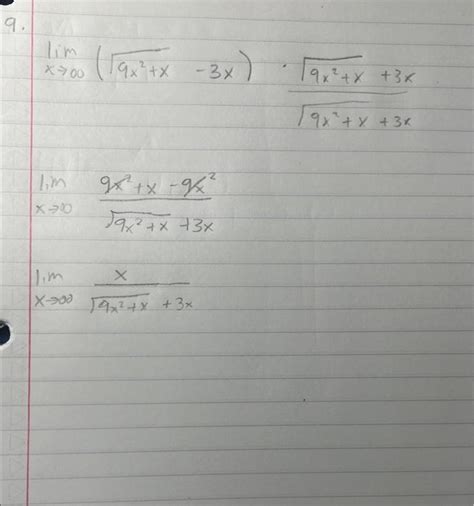 9.
lim x→∞ (√(9x²+x) - 3x) · (√(9x²+x) + 3x)/(√(9x²+x) + 3x)
lim x→∞ (9x²+x - 9x²)/(√(9x²+x) + 3x)
lim x→∞ x/(√(9x²+x) + 3x)